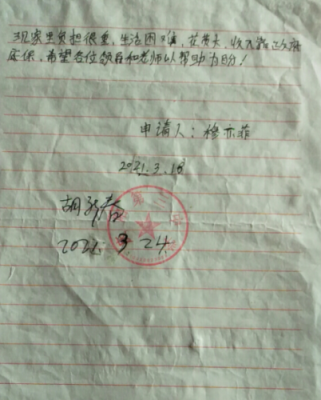 现家里负担很重，生活困难，花费大，收入
医保，希望各位领导和老师以帮助为盼！
申请人：穆亦菲
2021.3.18
胡新春
2021.3.24